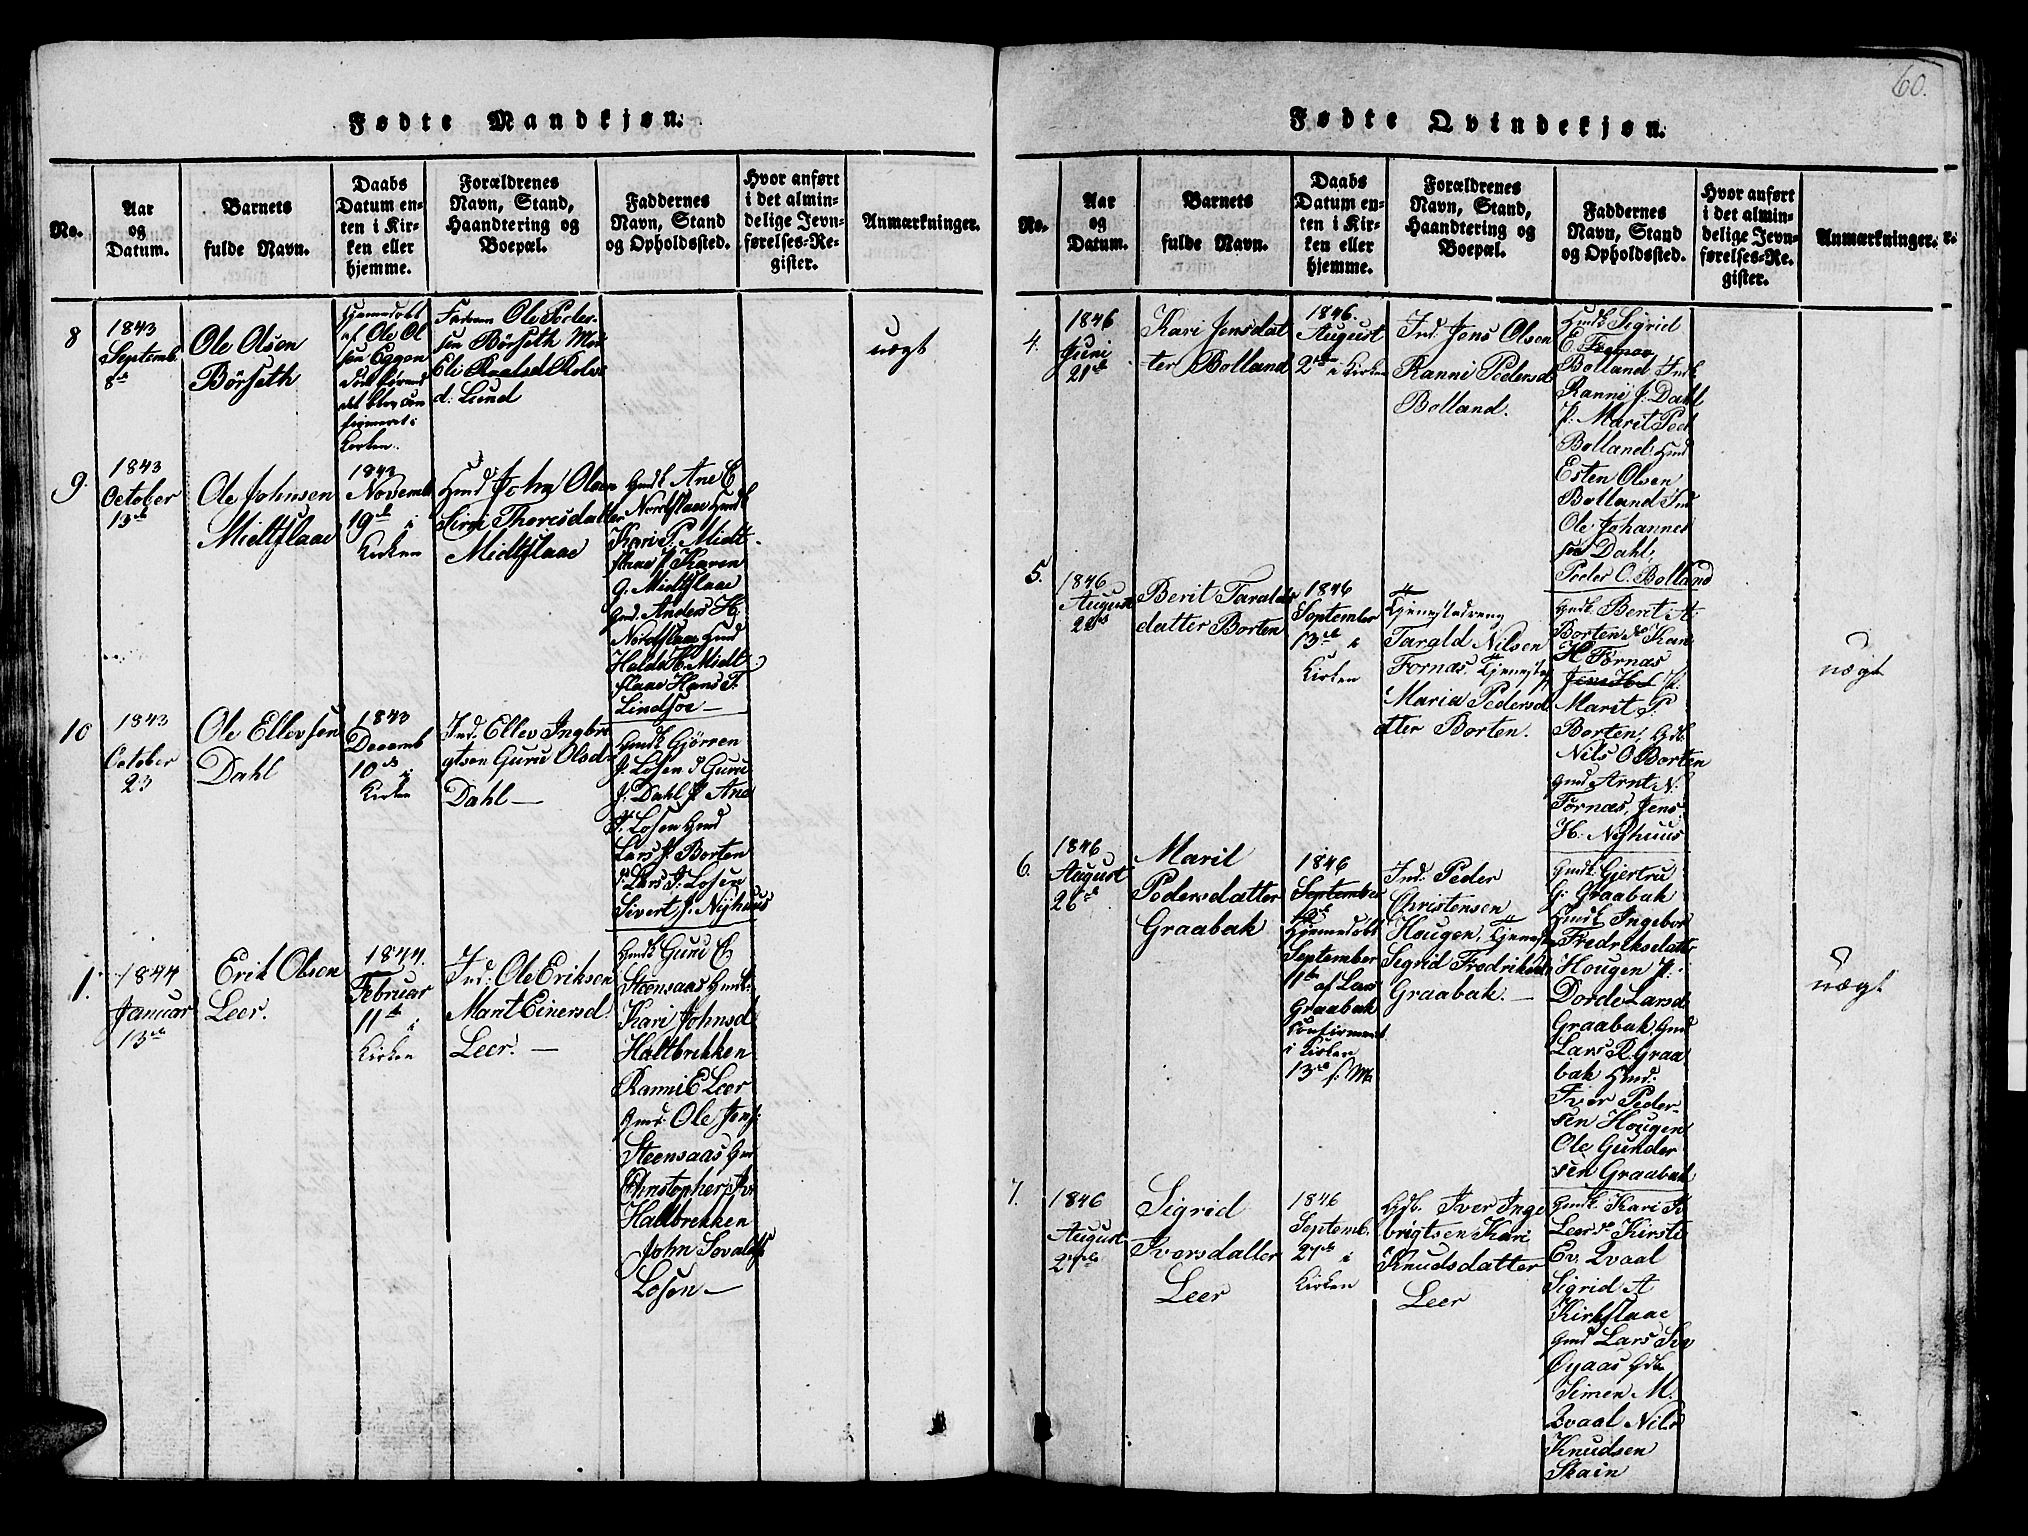 60.
Fødte Mandkjøn.
No.
Aar
og
Datum.
Barnets
fulde Navn.
Daabs
Datum en-
ten i Kir-
ken eller
hjemme.
Forældrenes
Navn, Stand,
Haandtering og
Boepæl.
Faddernes
Navn, Stand
og Opholdssted.
Hvor anført
i det almin-
delige Jevn-
førelses-Re-
gister.
Anmærkninger.
8
1843
Septemb.
8de
Ole Olsen
Børseth
Hjemmedøbt
af Ole Ol
sen Eggen
confirmeret i
Kirken.
Ole Peder-
sen Børseth
Eli
d: Lund
uægt
9.
1843
October
13de
Ole Johnsen
Midtflaae
1843
Novemb
19de i
Kirken
Gmd John Olsen
Siri Thoresdatter
Midtflaae
Gmdk Ane E
Nordflaae Gmdk
Kari P. Midt-
flaae P. Karen
G. Midtflaae
Gmd. Anders H.
Nordflaae Gmd
Halds H. Midt
flaae Hans T.
Lindsøe —
10
1843
October
23
Ole Ellevsen
Dahl
1843
Decemb
10de i
Kirken
Ind: Ellev Ingbri
gtsen Guru Olsd
Dahl —
Gmdk Gjørren
J. Losen d Guru
J. Dahl P Ane
J. Losen Gmd
Lars J. Borten
P. Lars J. Losen
Sivert J. Nyhuus
1.
1844
Januar
13de
Erik Olsen
Leer.
1844.
Februar
11te i
Kirken
Ind: Ole Eriksen
Marit Einersd.
Leer. —
Gmdk Guru E
Steensaas Gmdk
Kari Johnsd
Haltbrekken
Ranni E Leer
Gmd: Ole Jens:
Steensaas Gmd
Christopher Iv
Haltbrekken
John Sovalds
Losen —
Fødte Qvindekjøn.
No.
Aar
og
Datum.
Barnets
fulde Navn.
Daabs
Datum en-
ten i Kir-
ken eller
hjemme.
Forældrenes
Navn, Stand,
Haandtering og
Boepæl.
Faddernes
Navn, Stand
og Opholdssted.
Hvor anført
i det almin-
delige Jevn-
førelses-Re-
gister.
Anmærkninger.
4.
1846
Juni
21de
Kari Jensdat
ter Bolland
1846.
August
2den i Kirken
Ind: Jens Olsen
Ranni Pedersd
Bolland.
Gmdk Sigrid
E.
Bolland Indk
Ranni J. Dahl
P: Marit Ped
Bolland. Gmd
Esten Olsen
Bolland Ind
Ole Johannes
sen Dahl,
Peder O. Bolland
5.
1846
August
Berit Taralds
datter Borten
1846
September
13de i
Kirken
Tjenestedreng
Tarald Nilsen
Fornæs, Tjenestep
Maria Pedersd
atter Borten.
Gmdk Berit A
Borten do Kari
H Fornæs
P.
Marit P.
Borten, Gdb.
Nils O Borten
Gmd Arnt N.
Fornæs, Jens
H. Nyhuus
uægt
6.
1846
August
26de
Marit
Pedersdatter
Graabak
1846
September
Hjemmedøbt
September
11te af Lars
Graabak
Confirmeret
i Kirken
13de s. M.
Ind: Peder
Christensen
Hougen, Tjenestep
Sigrid Fredriksd
Graabak. —
Gmdk Gjertru
G: Graabak
Gmdk Ingebor
Fredriksdatt
Hougen P.
Dorde Larsd
Graabak, Gmd
Lars R. Graa
bak Gmd:
Iver Peder-
sen Hougen
Ole Gunder
sen Graabak
uægt
7.
1846
August
27de
Sigrid
Iversdatter
Leer
1846
Septemb.
27de i
Kirken
Gdb. Iver Inge
brigtsen Kari
Knudsdatter
Leer
Gmdk Kari Iv
Leer Kirsti
Ev. Qvaal
Sigrid A
Kirkflaae
Gmd Lars Iv
Øyaas Gdb
Simen M.
Qvaal Nils
Knudsen
Skain